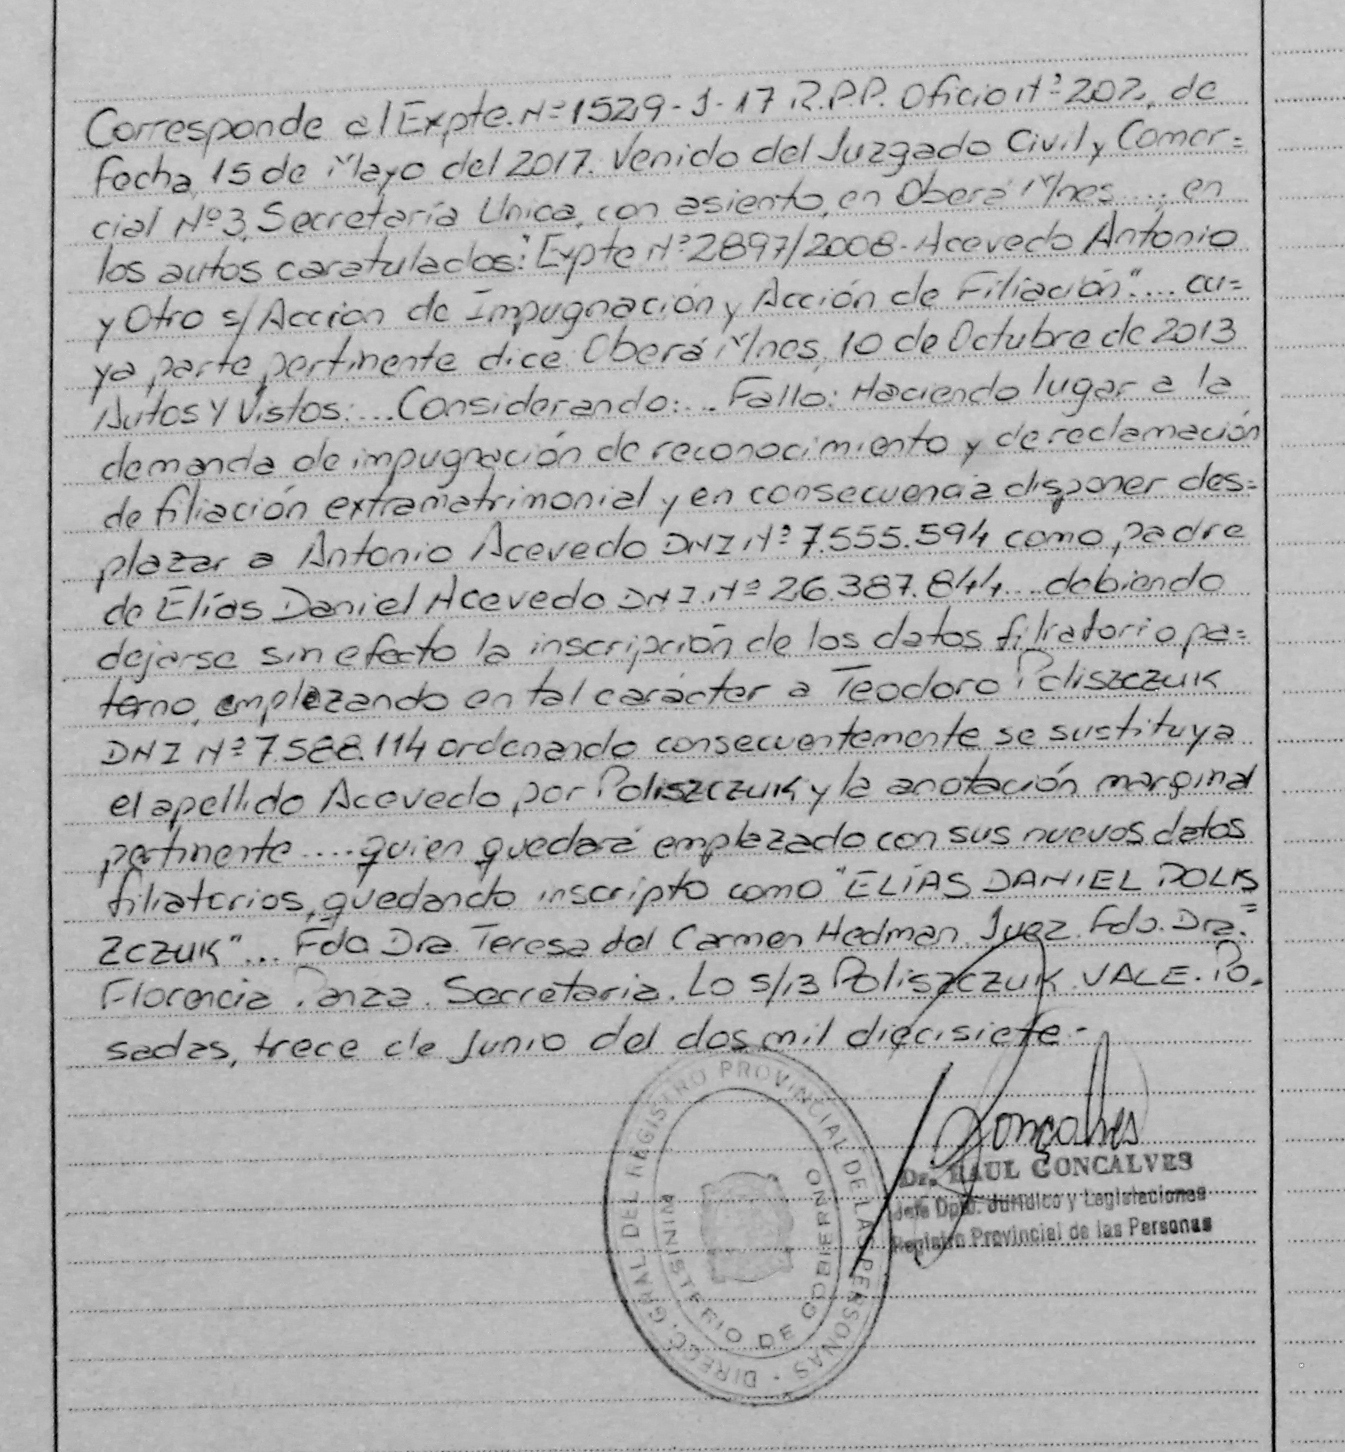 Corresponde al Expte. Nº 1529-J-17 R.P.P. Oficio Nº 202, de
fecha 15 de Mayo del 2017. Venido del Juzgado Civil y Comer=
cial Nº 3, Secretaría Unica, con asiento, en Oberá Mnes...., en
los autos caratulados: "Expte Nº 2897/2008- Acevedo Antonio
y Otro s/ Acción de Impugnación y Acción de Filiación"... cu=
ya parte pertinente dice: Oberá Mnes, 10 de Octubre de 2013
Autos y Vistos:... Considerando:... Fallo: Haciendo lugar a la
demanda de impugnación de reconocimiento y de reclamación
de filiación extramatrimonial y en consecuencia disponer des=
plazar a Antonio Acevedo DNI Nº 7.555.594 como padre
de Elías Daniel Acevedo DNI. Nº 26.387.844... debiendo
dejarse sin efecto la inscripción de los datos filiatorio pa=
terno, emplazando en tal carácter a Teodoro Poliszczuk
DNI Nº 7.588.114 ordenando consecuentemente se sustituya
el apellido Acevedo, por Poliszczuk y la anotación marginal
pertinente .... quien quedará emplazado con sus nuevos datos
filiatorios, quedando inscripto como "ELÍAS DANIEL POLIS
ZCZUK"... Fdo Dra. Teresa del Carmen Hedman Juez. Fdo. Dra. =
Florencia Panza. Secretaria. Lo s/13 Poliszczuk. VALE. Po.
sadas, trece de Junio del dos mil diecisiete.-
DIRECC. GRAL. DEL REGISTRO PROVINCIAL DE LAS PERSONAS
MINISTERIO DE GOBIERNO
Gonçalves
Dr. RAUL GONCALVES
Jefe Dpto. Jurídico y Legislaciones
Registro Provincial de las Personas